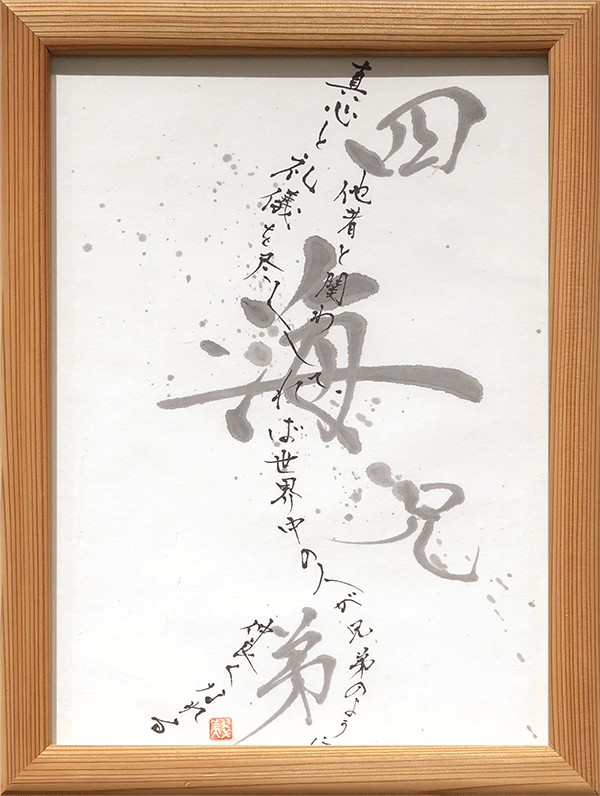 四海兄弟
他者と関わって
真心と礼儀を尽くしれば世界中の人が兄弟のように
仲良くなれる